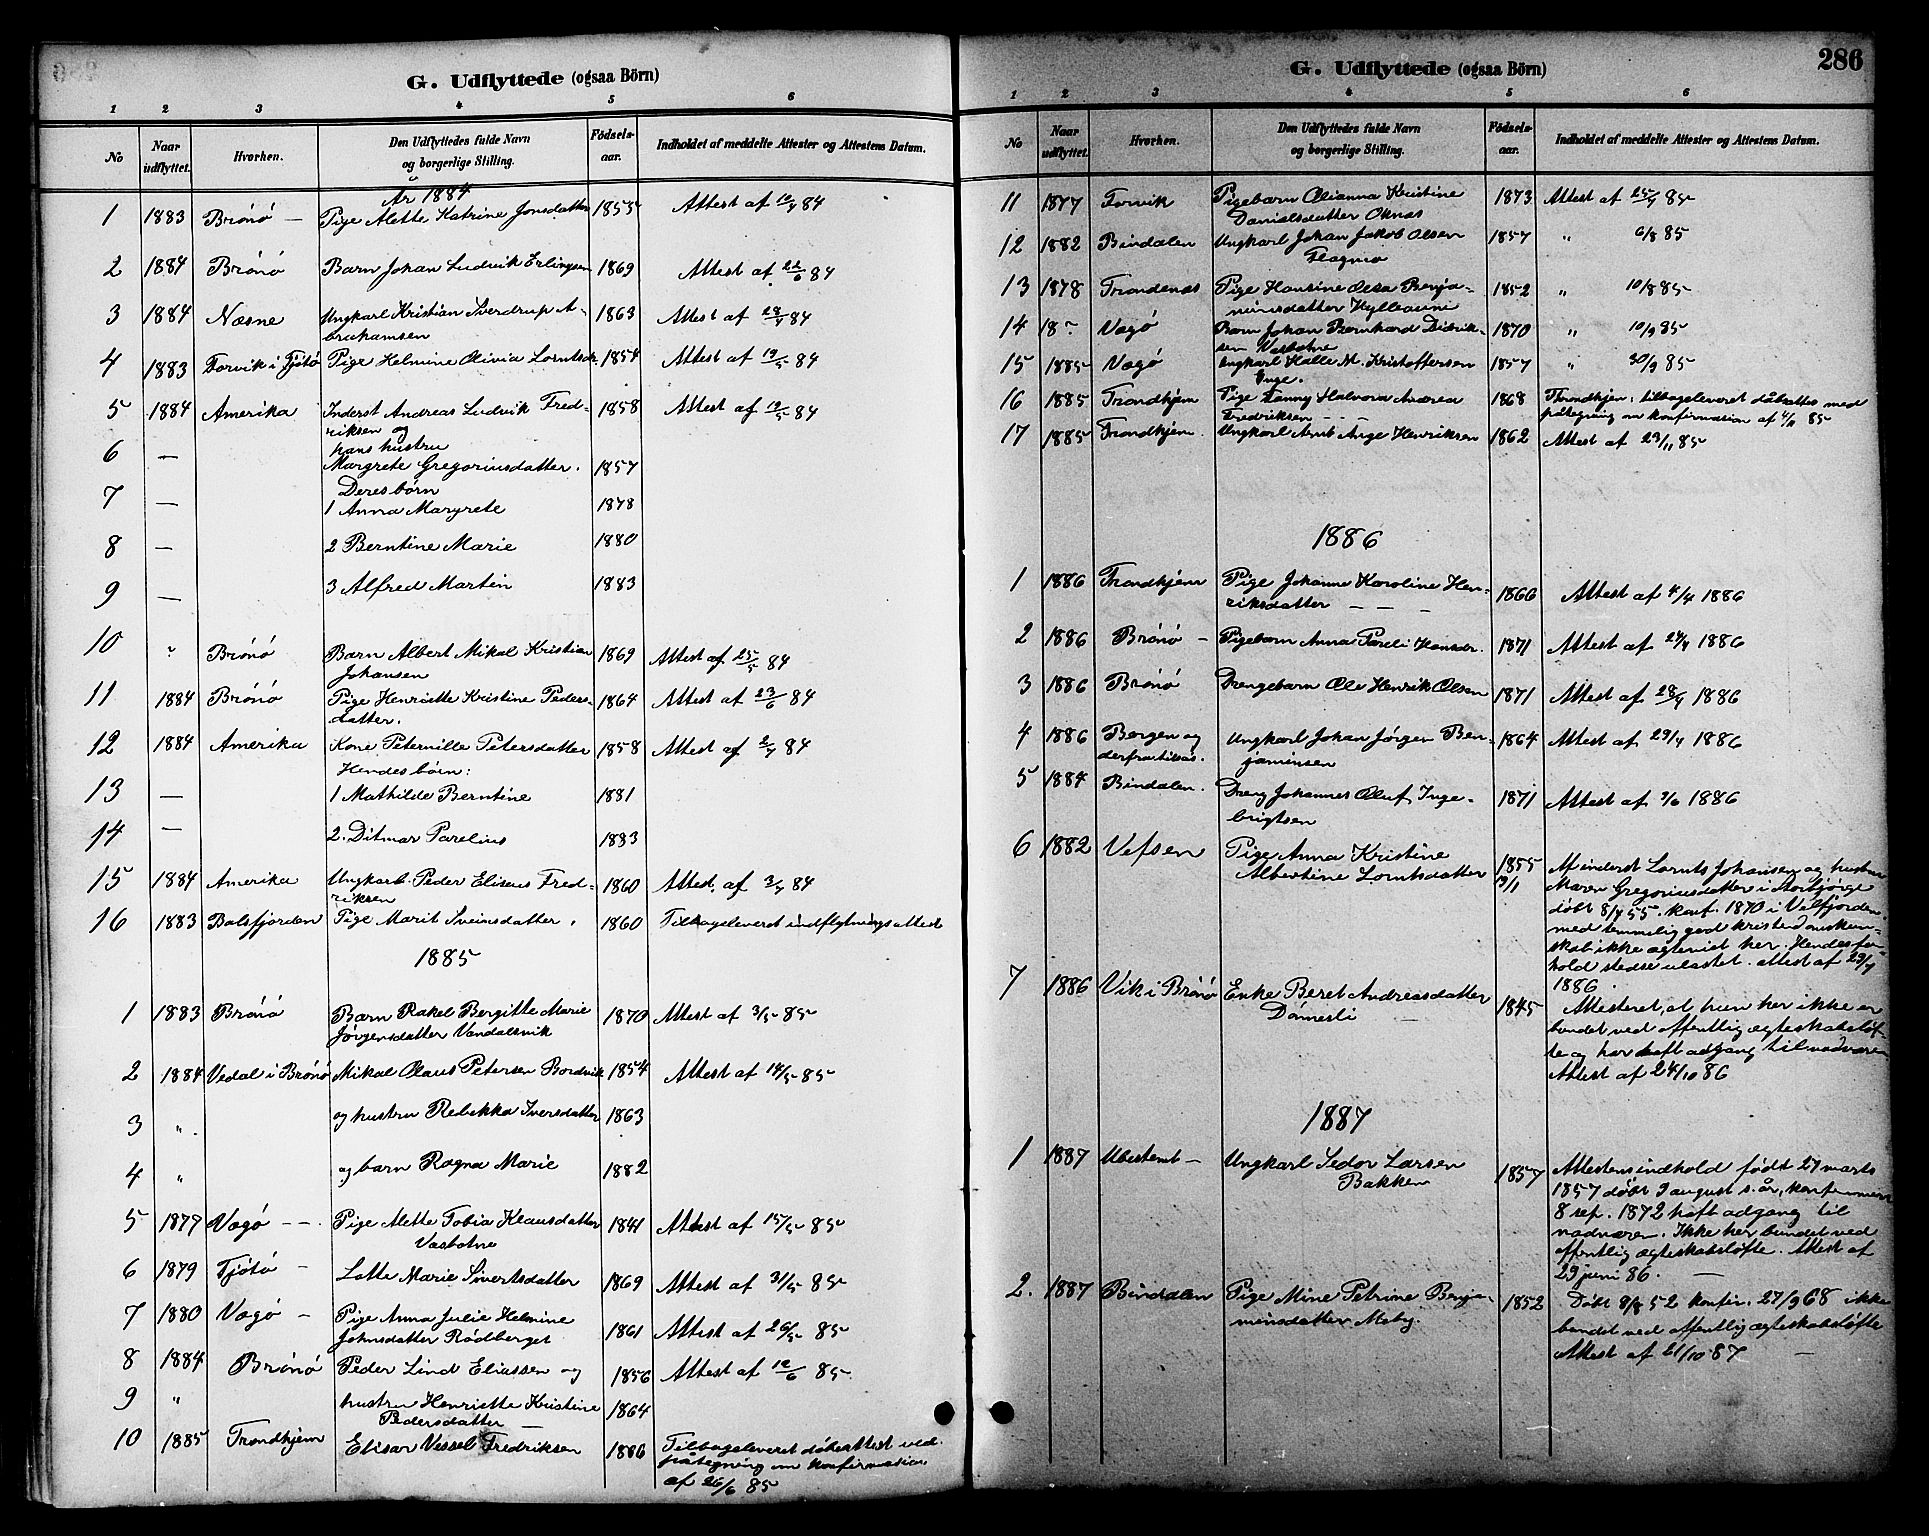 G. Udflyttede (ogsaa Börn)
1 2 3 4 5 6
No Naar udflyttet. Hvorhen. Den Udflyttedes fulde Navn og borgerlige Stilling. Födsels-aar. Indholdet af meddelte Attester og Attestens Datum.
År 1884
1 1883 Brönö — Pige Alette Katrine Jonsdatter 1855 Attest af 84
2 1884 Brönö Barn Johan Ludvik Erlingsen 1869 Attest af 22/6 84
3 1884 Næsne Ungkarl Kristian Sverdrup A-
brahamsen 1863 Attest af 84
4 1883 Forvik i Tjötö Pige Helmine Olivia Lorntsdr. 1854 Attest af 19/5 84
5 1884 Amerika Inderst Andreas Ludvik Fred-
riksen og 1858 Attest af 19/5 84
6 — hans hustru
Margrete Gregoriusdatter. 1857
7 — Deres börn
1 Anna Margrete 1878
8 — 2 Berntine Marie 1880
9 — 3 Alfred Martin 1883
10 ? Brönö Barn Albert Mikal Kristian
Johansen 1869 Attest af 25/5 84
11 1884 Brönö Pige Henriette Kristine Peders-
datter. 1864 Attest af 23/6 84
12 1884 Amerika Kone Peternille Petersdatter 1858 Attest af 2/7 84
Hendes börn:
13 — 1 Mathilde Berntine 1881
14 — 2. Ditmar Parelius 1883
15 1884 Amerika Ungkarl Peder Eliseus Fred-
riksen 1860 Attest. af 84
16 1883 Balsfjorden Pige Marit Sveinsdatter. 1860 Tilbageleveret indflytningsattest
1885
1 1883 Brönö Barn Rakel Bergitte Marie
Jörgensdatter Vandalsvik 1870 Attest af 3/5 85
2 1884 Vedal i Brönö Mikal Olaus Petersen Bordvik 1854 Attest af 14/5 85
3 " og hustru Rebekka Iversdatter 1863
4 " og barn Ragna Marie 1882
5 1879 Vegö — Pige Alette Tobia Klausdatter
Vasbotne 1841 Attest af 15/5 85
6 1879 Tjötö — Lotte Marie Sivertsdatter 1869 Attest af 31/5 85
7 1880 Vegö — Pige Anna Julie Helmine
Johnsdatter Rödberget 1861 Attest af 26/5 85
8 1884 Brönö Peder Lind Eliassen og 1856 Attest af 85
9 " hustru Henriette Kristine
Pedersdatter — 1864
10 1885 Trondhjem Elisar Vessel Fredriksen 1886 Tilbageleveret döbeattest ved
påtegning om konfirmation
af 26/6 85
286
G. Udflyttede (ogsaa Börn)
1 2 3 4 5 6
No Naar udflyttet. Hvorhen. Den Udflyttedes fulde Navn og borgerlige Stilling. Födsels-aar. Indholdet af meddelte Attester og Attestens Datum.
11 1877 Forvik Pigebarn Olianna Kristine
Danielsdatter Oknas 1873 Attest af 85
12 1882 Bindalen Ungkarl Johan Jakob Olsen
Flagmo 1857 " 6/8 85
13 1878 Trondenas Pige Hansine Olsa Benja-
minsdatter 1852 " 10/8 85
14 18? Vegö Barn Johan Bernhard Didrik-
sen Vasbotne 1870 " 10/9 85
15 1885 Vegö Ungkarl Halle M. Kristoffersen
1857 " 30/9 85
16 1885 Trondhjem Pige Fanny Halvora Andrea
Fredriksen — 1868 tilbageleveret döbattest med
påtegning om konfirmation af 85
17 1885 Trondhjem Ungkarl Arnt Ange Henriksen 1862 Attest af 23/11 85
1886
1 1886 Trondhjem Pige Johanne Karoline Hen-
riksdatter — — 1866 Attest af 4/4 1886
2 1886 Brönö — Pigebarn Anna Pareli Hansdr. 1871 Attest af 24/4 1886
3 1886 Brönö Drengebarn Ole Henrik Olsen 1871 Attest af 28/4 1886
4 1886 Bergen og
derfra tilsös. Ungkarl Johan Jörgen Ben-
jaminsen 1864 Attest af 29/4 1886
5 1884 Bindalen. Dreng Johannes Oluf Inge-
brigtsen 1871 Attest af 1886
6 1882 Vefsen Pige Anna Kristine
Albertine Lorntsdatter 1855
19/1 Af inderst Lornts Johansen og hustru
Maren Gregoriusdatter i Storbjörge
döbt 8/4 55. Konf. 1870 i Velfjorden
med temmelig god kristendomskun-
skab ikke ægteviet her. Hendes for-
hold stedse ulastet. Attest af 29/4
1886.
7 1886 Vik i Brönö Enke Beret Andreasdatter
Dönnesli — 1845 Attesteret, at hun her ikke er
bundet ved offentlig ægteskabslöf-
te og har haft adgang til nadveren
Attest af 24/10 86
1887
1 1887 Ubestemt — Ungkarl Sedor Larsen
Bakken 1857 Attestens indhold födt 27 marts
1857 döbt 9 august s. år, konfirmeret
8 sep. 1872 haft adgang til
nadveren. Ikke her bundet ved
offentlig ægteskabslöfte. Attest af
29 juni 86. —
2. 1887 Bindalen Pige Mine Petrine Benja-
minsdatter Moby. 1852 Döbt 8/8 52 konfir. 27/9 68 ikke
bundet ved offentlig ægteskabslöfte
Attest af 21/10 87 —